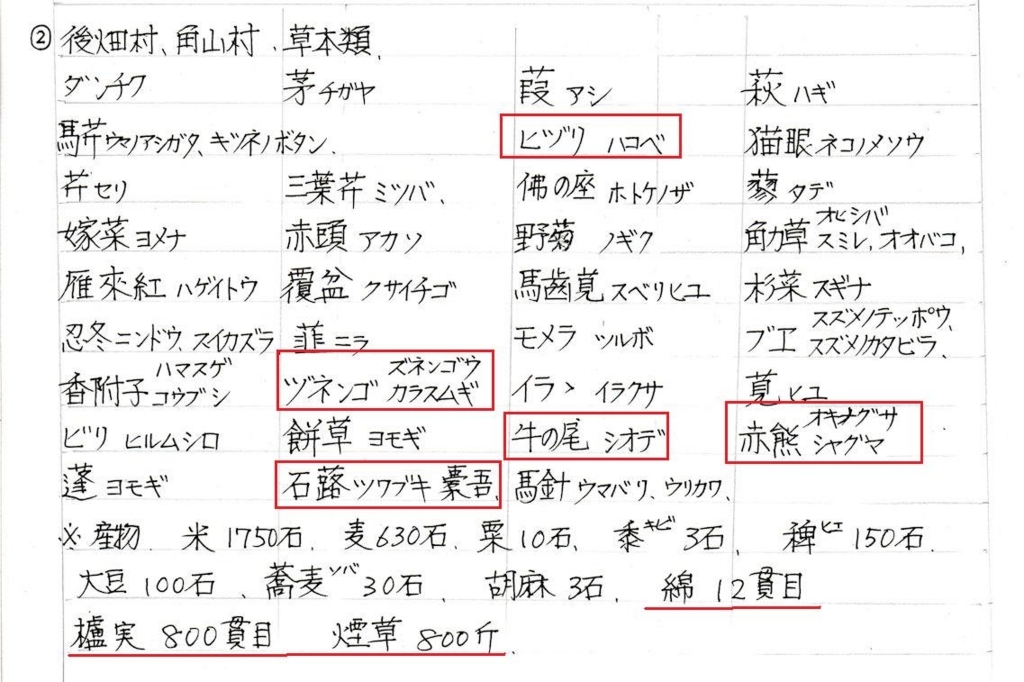 ② 後畑村、角山村、草本類、
ダンチク 茅 チガヤ 葭 アシ 萩 ハギ
馬芹 ウマノアシガタ、キツネノボタン、 ヒヅリ ハコベ 猫眼 ネコノメソウ
芹 セリ 三葉芹 ミツバ、 佛の座 ホトケノザ 蓼 タデ
嫁菜 ヨメナ 赤頭 アカソ 野菊 ノギク 角力草 オヒシバ スミレ、オオバコ、
雁來紅 ハゲイトウ 覆盆 クサイチゴ 馬歯莧 スベリヒユ 杉菜 スギナ
忍冬 ニンドウ、スイカズラ 韮 ニラ モメラ ツルボ ブエ スズメノテッポウ、スズメノカタビラ、
香附子 ハマスゲ コウブシ ヅネンゴ ズネンゴウ カラスムギ イラヽ イラクサ 莧 ヒユ
ビリ ヒルムシロ 餅草 ヨモギ 牛の尾 シオデ 赤熊 オキナグサ シャグマ
蓬 ヨモギ 石蕗 ツワブキ 槖吾、 馬針 ウマバリ、ウリカワ、
※産物 米1750石、麦630石、粟10石、黍キビ 3石、稗ヒエ 150石、
大豆100石、蕎麦ソバ 30石、胡麻3石、綿12貫目
櫨実 800貫目 煙草 800斤、